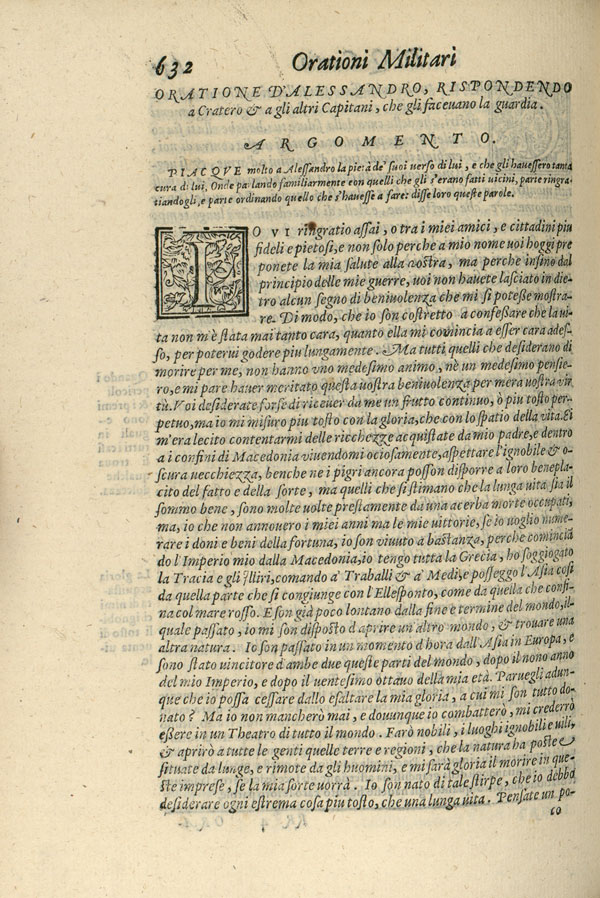 632 Orationi Militari
ORATIONE D'ALESSANDRO, RISPONDENDO
a Cratero & a gli altri Capitani, che gli facevano la guardia.
ARGOMENTO.
PIACQVE molto a Alessandro la pietà de' suoi verso di lui, e che gli hauessero tanta
cura di lui, Onde parlando familiarmente con quelli che gli s'erano fatti uicini, parte ringra
tiandogli, e parte ordinando quello che s'hauesse a fare: disse loro queste parole.
IO VI ringratio assai, o tra i miei amici, e cittadini piu
fideli e pietosi, e non solo perche a mio nome uoi hoggi pre
ponete la mia salute alla uostra, ma perche insino dal
principio delle mie guerre, uoi non hauete lasciato in die
tro alcun segno di beniuolenza che mi si potesse mostra-
re. Di modo, che io son costretto a confessare che la ui-
ta non m'è stata mai tanto cara, quanto ella mi comincia a esser cara ades-
so, per poterui godere piu lungamente. Ma tutti quelli che desiderano di
morire per me, non hanno vno medesimo animo, nè un medesimo pensie-
ro, e mi pare hauer meritato questa uostra beniuolenza per mera uostra vir
tù. Voi desiderate forse di riceuer da me un frutto continuo, ò piu tosto per-
petuo, ma io mi misuro piu tosto con la gloria, che con lo spatio della vita. Ei
m'era lecito contentarmi delle ricchezze acquistate da mio padre, e dentro
a i confini di Macedonia viuendomi ociosamente, aspettare l'ignobile & o-
scura uecchiezza, benche ne i pigri ancora posson disporre a loro benepla-
cito del fatto e della sorte, ma quelli che si stimano che la lunga uita sia il
sommo bene, sono molte uolte prestamente da una acerba morte occupati,
ma, io che non annouero i miei anni ma le mie uittorie, se io uoglio nume-
rare i doni e beni della fortuna, io son viuuto a bastanza, perche comincia
do l'Imperio mio dalla Macedonia, io tengo tutta la Grecia, ho soggiogato
la Tracia e gli Illiri, comando a' Traballi & a' Medi, e posseggo l'Asia cosi
da quella parte che si congiunge con l'Ellesponto, come da quella che confi-
na col mare rosso. E son già poco lontano dalla fine e termine del mondo, il-
quale passato, io mi son disposto d'aprire un'altro mondo, & trouare una
altra natura. Io son passato in un momento d'hora dall'Asia in Europa, e
sono stato uincitore d'ambe due queste parti del mondo, dopo il nono anno
del mio Imperio, e dopo il uentesimo ottauo della mia età. Paruegli adun-
que che io possa cessare dallo esaltare la mia gloria, a cui mi son tutto do-
nato? Ma io non mancherò mai, e douunque io combatterò, mi crederrò
essere in un Theatro di tutto il mondo. Farò nobili, i luoghi ignobili e uili,
& aprirò a tutte le genti quelle terre e regioni, che la natura ha poste e
situate da lunge, e rimote da gli huomini, e mi sarà gloria il morire in que-
ste imprese, se la mia sorte uorrà. Io son nato di tale stirpe, che io debbo
desiderare ogni estrema cosa piu tosto, che una lunga uita. Pensate un po-
co